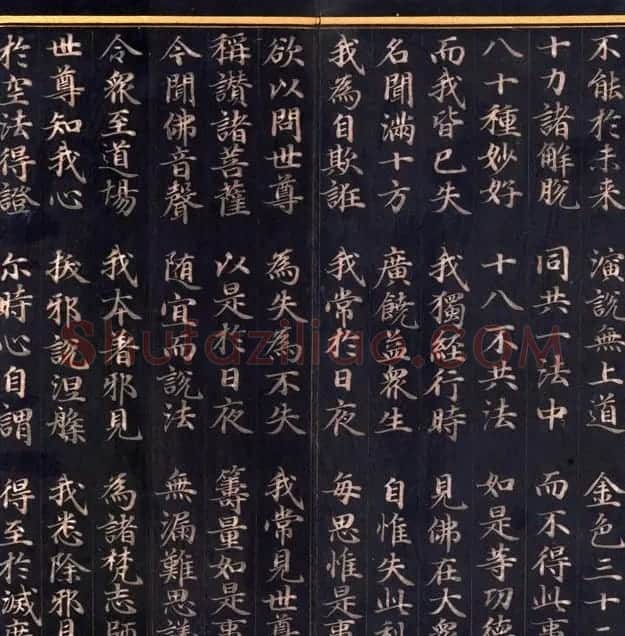 不能於未來 演說無上道 金色三十二
十力諸解脫 同共一法中 而不得此事
八十種妙好 十八不共法 如是等功德
而我皆已失 我獨經行時 見佛在大眾
名聞滿十方 廣饒益眾生 自惟失此利
我為自欺誑 我常於日夜 每思惟是事
欲以問世尊 為失為不失 我常見世尊
稱讚諸菩薩 以是於日夜 籌量如是事
今聞佛音聲 随宜而說法 無漏難思議
令眾至道場 我本著邪見 為諸梵志師
世尊知我心 拔邪說涅槃 我悉除邪見
於空法得證 尔時心自謂 得至於滅度
Shufaziliao.COM